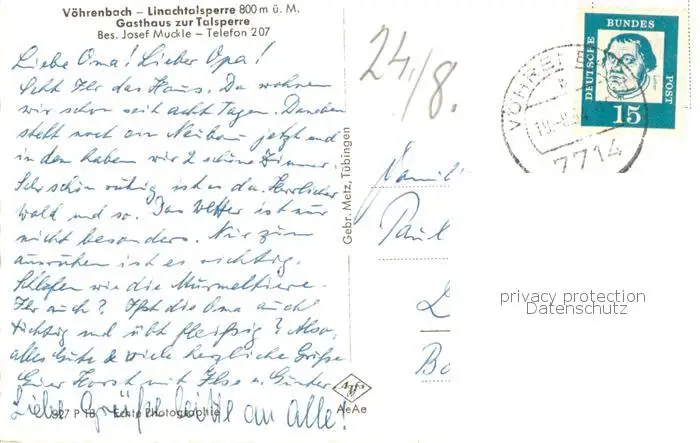 Vöhrenbach – Linachtalsperre 800 m ü. M.
Gasthaus zur Talsperre
Bes. Josef Muckle – Telefon 207
Liebe Oma! Lieber Opa!
Seht Ihr das Haus. Da wohnen
wir schon seit acht Tagen. Daneben
steht noch ein Neubau jetzt und
in dem haben wir 2 schöne Zimmer.
Sehr schön ruhig ist es da. Herrlicher
Wald und so. Das Wetter ist nur
nicht besonders. Nur zum
ausruhen ist es richtig.
Schlafen wie die Murmeltiere.
Ihr auch? Ißt die Oma auch
tüchtig und übt fleißig? Also,
alles Gute & viele herzliche Grüße
Euer Horst mit Ilse u. Günter
Liebe Grüße an alle!
927 P 18 Echte Photographie
Gebr. Metz, Tübingen
Agfa
AeAe
24./8.
DEUTSCHE
BUNDES
POST
15
VÖHRE
7714
Famil
Paul
L
Bo
privacy protection
Datenschutz